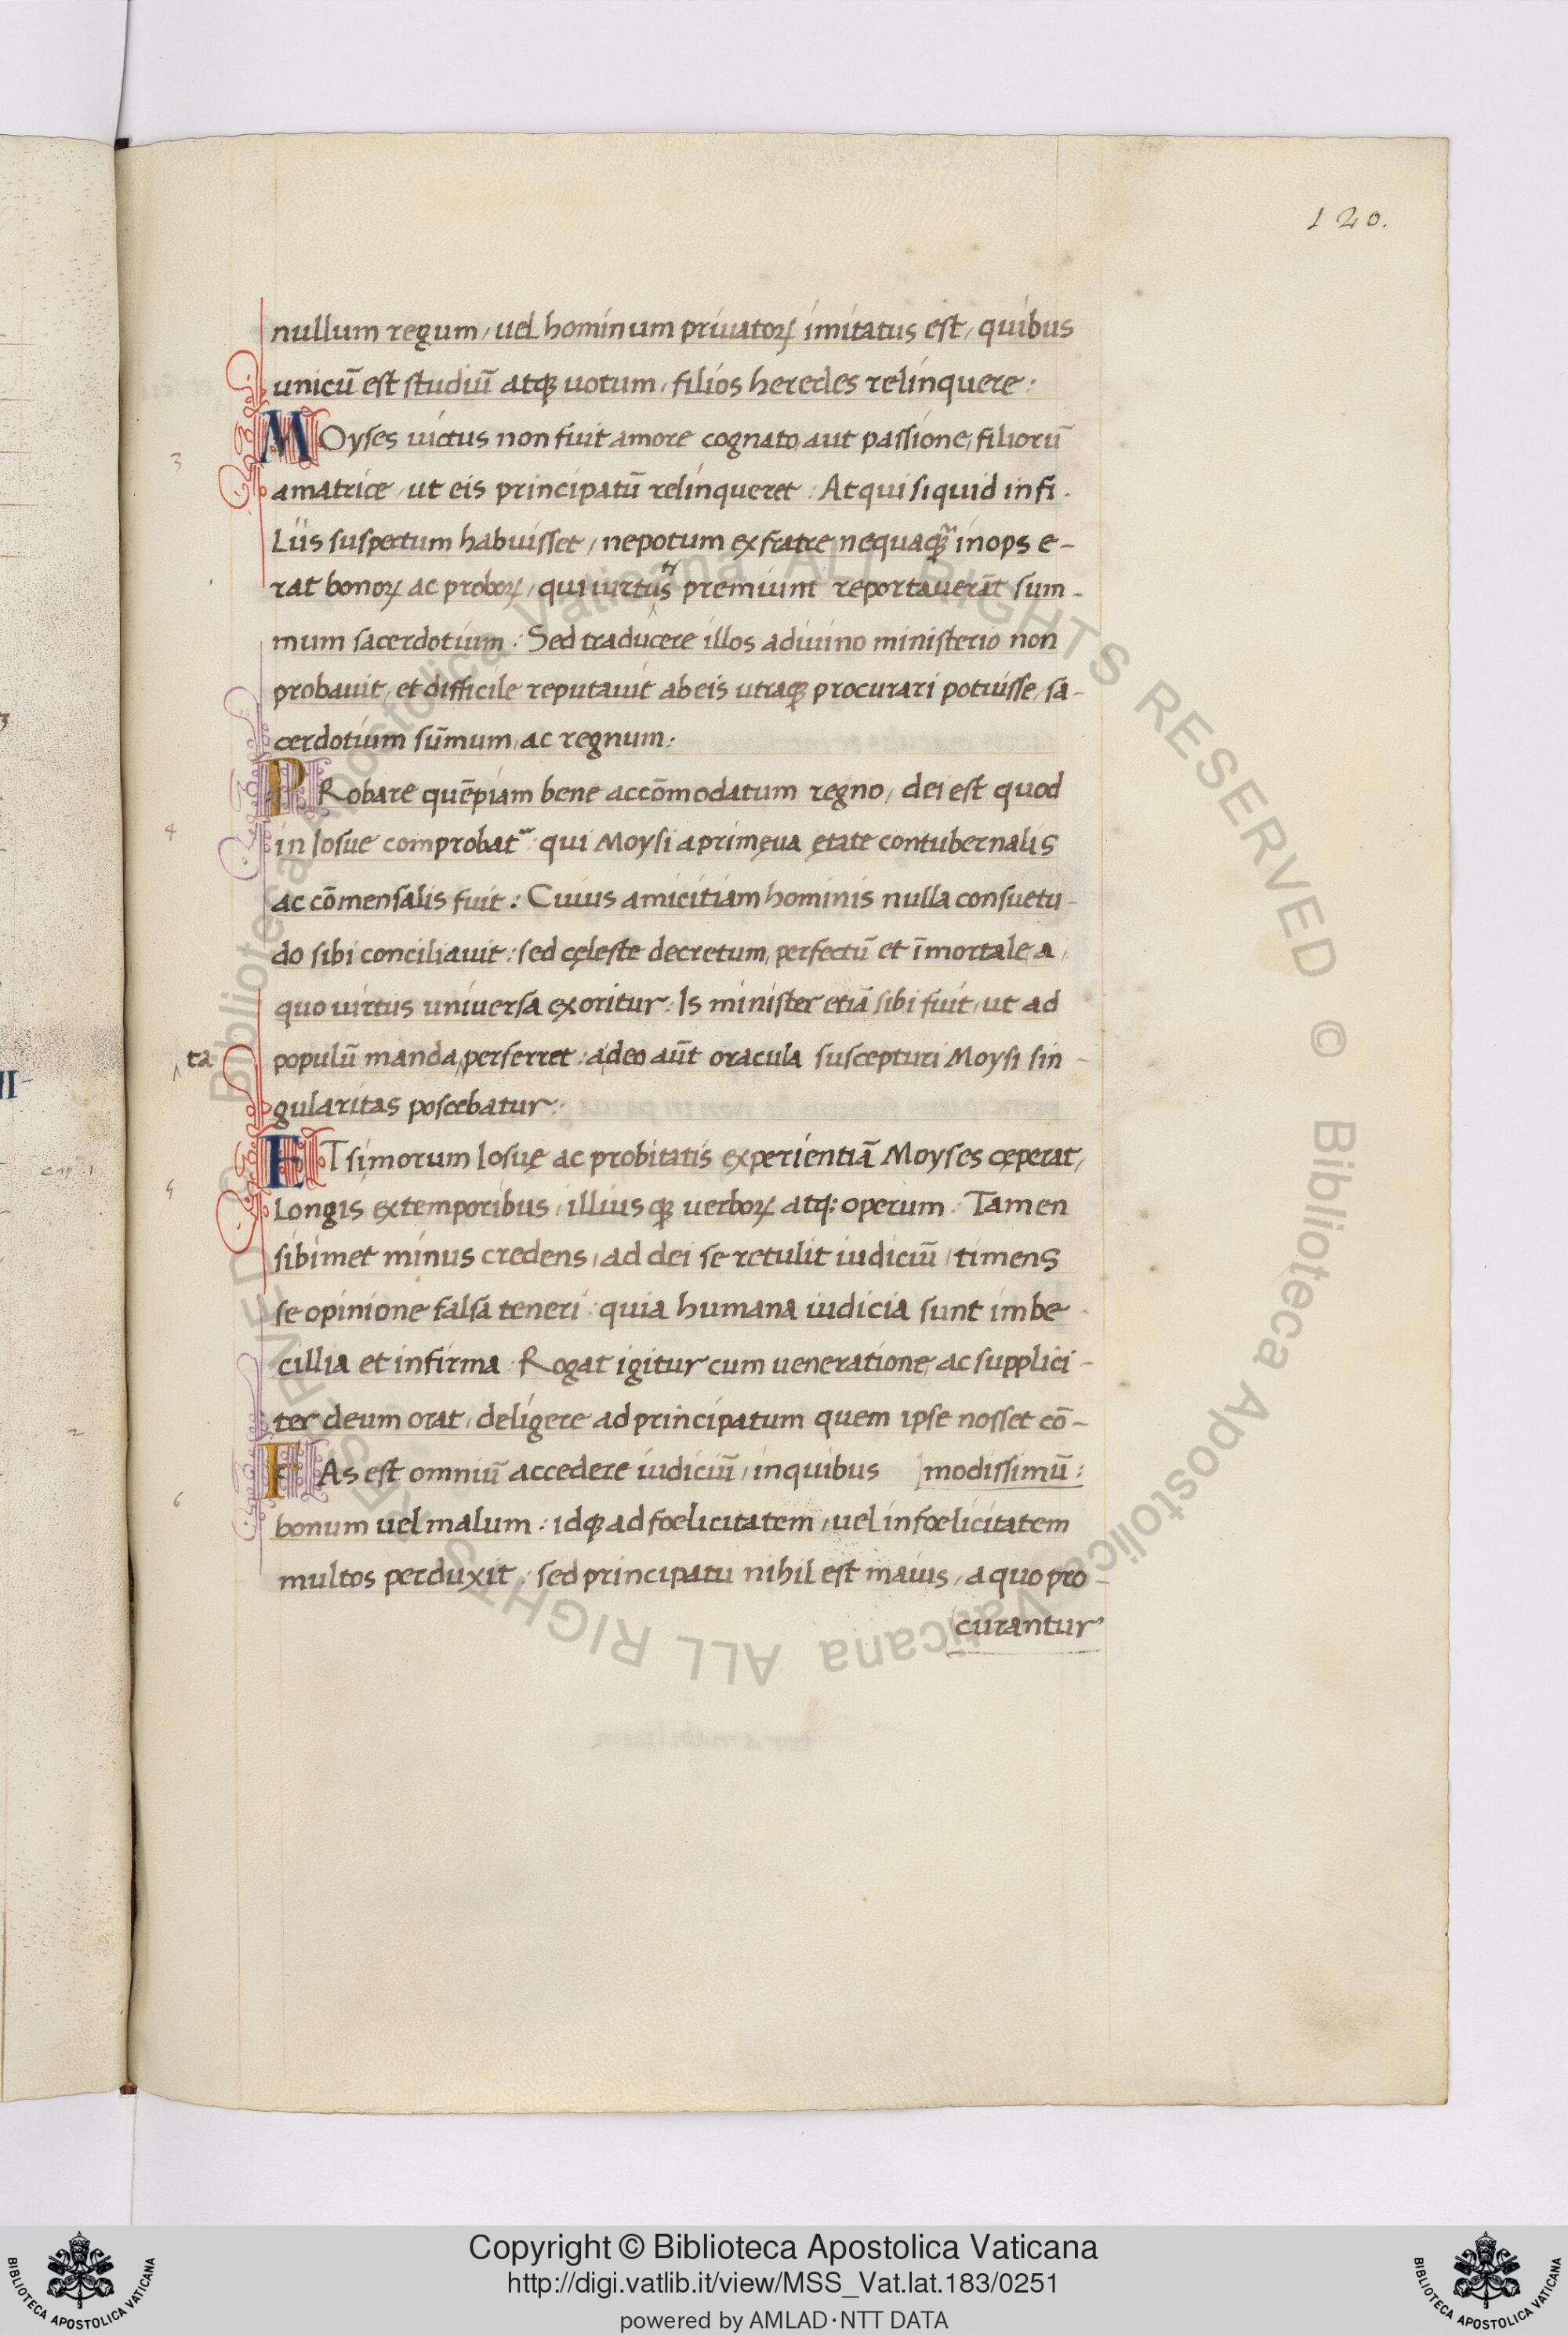 120.
nullum regum, uel hominum priuatoꝝ imitatus est, quibus
unicū est studiū atqꝫ uotum, filios heredes relinquere:
MOyses uictus non fuit amore cognato, aut passione, filiorū
3
amatrice, ut eis principatū relinqueret: At qui si quid in fi-
liis suspectum habuisset, nepotum ex fratre nequaqꝫ̃ inops e-
rat bonoꝝ ac proboꝝ, qui uirtutis premium reportauerāt sum-
mum sacerdotium: Sed traducere illos a diuino ministerio non
probauit, et difficile reputauit ab eis utraqꝫ procurari potuisse, sa-
cerdotium sūmum, ac regnum:
PRobare quēpiam bene accōmodatum regno, dei est quod
4
in Iosue comprobat᷑: qui Moysi a primęua ętate contubernalis
ac cōmensalis fuit: Cuius amicitiam hominis nulla consuetu-
do sibi conciliauit: sed cęleste decretum, perfectū et īmortale, a
quo uirtus uniuersa exoritur: Is minister etiā sibi fuit, ut ad
populū manda‸ perferret: a deo aūt oracula suscepturi Moysi sin-
‸ta
gularitas poscebatur:
ETsi morum Iosuę ac probitatis experientiā Moyses cęperat,
5
longis ex temporibus, illiusqꝫ uerboꝝ atq: operum: Tamen
sibimet minus credens, ad dei se retulit iudiciū, timens
se opinione falsa teneri: quia humana iudicia sunt imbe-
cillia et infirma: Rogat igitur cum ueneratione, ac supplici-
ter deum orat, deligere ad principatum quem ipse nosset cō-
modissimū:
FAs est omniū accedere iudiciū, in quibus
6
bonum uel malum: idqꝫ ad foelicitatem, uel infoelicitatem
multos perduxit: sed principatu nihil est maius, a quo pro-
curantur
II
2
Biblioteca Apostolica Vaticana ALL RIGHTS RESERVED © Biblioteca Apostolica Vaticana ALL RIGHTS RESERVED ©
BIBLIOTECA APOSTOLICA VATICANA
Copyright © Biblioteca Apostolica Vaticana
http://digi.vatlib.it/view/MSS_Vat.lat.183/0251
powered by AMLAD·NTT DATA
BIBLIOTECA APOSTOLICA VATICANA